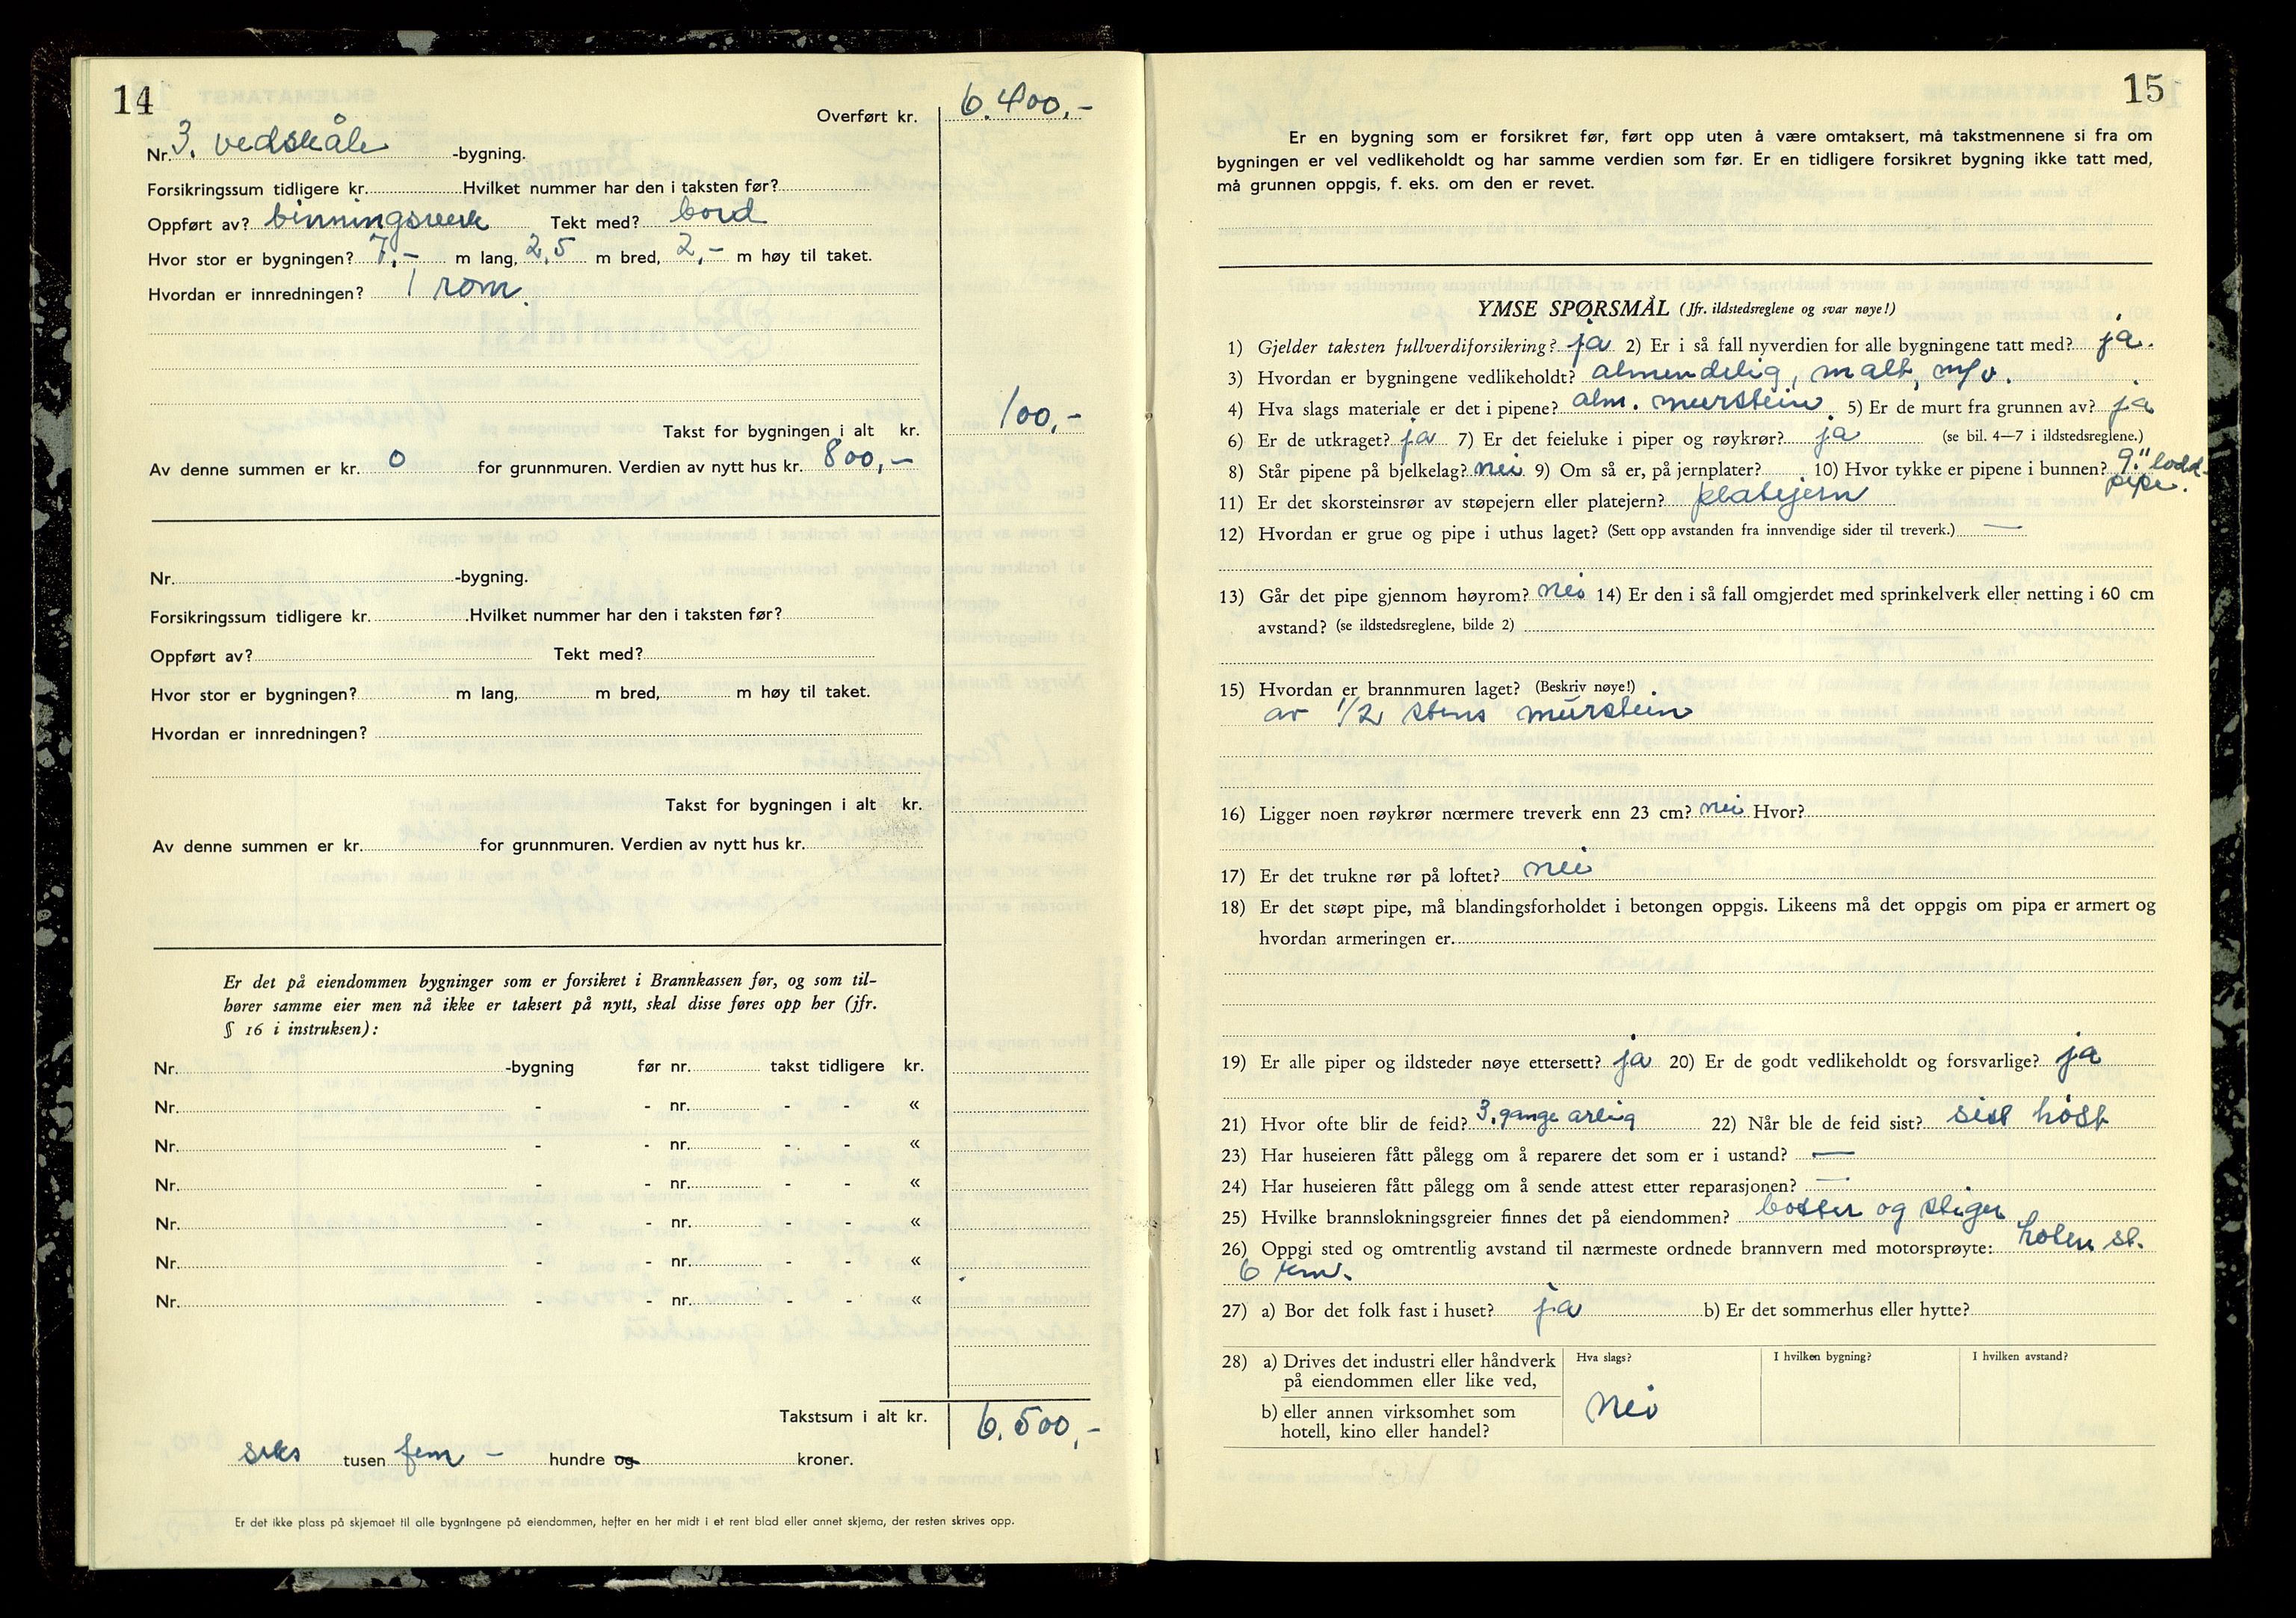 14
Overført kr. 6.400,-
Nr. 3. vedskåle -bygning.
Forsikringssum tidligere kr. Hvilket nummer har den i taksten før?
Oppført av? binningsverk Tekt med? bord
Hvor stor er bygningen? 7,- m lang, 2,5 m bred, 2,- m høy til taket.
Hvordan er innredningen? 1 rom.
Takst for bygningen i alt kr. 100,-
Av denne summen er kr. 0 for grunnmuren. Verdien av nytt hus kr. 800,-
Nr. -bygning.
Forsikringssum tidligere kr. Hvilket nummer har den i taksten før?
Oppført av? Tekt med?
Hvor stor er bygningen? m lang, m bred, m høy til taket.
Hvordan er innredningen?
Takst for bygningen i alt kr.
Av denne summen er kr. for grunnmuren. Verdien av nytt hus kr.
Er det på eiendommen bygninger som er forsikret i Brannkassen før, og som til-
hører samme eier men nå ikke er taksert på nytt, skal disse føres opp her (jfr.
§ 16 i instruksen):
Nr. -bygning før nr. takst tidligere kr.
Nr. - - nr. - - «
Nr. - - nr. - - «
Nr. - - nr. - - «
Nr. - - nr. - - «
Nr. - - nr. - - «
Nr. - - nr. - - «
Takstsum i alt kr. 6.500,-
seks tusen fem - hundre og kroner.
Er det ikke plass på skjemaet til alle bygningene på eiendommen, hefter en her midt i et rent blad eller annet skjema, der resten skrives opp.
15
Er en bygning som er forsikret før, ført opp uten å være omtaksert, må takstmennene si fra om
bygningen er vel vedlikeholdt og har samme verdien som før. Er en tidligere forsikret bygning ikke tatt med,
må grunnen oppgis, f. eks. om den er revet.
YMSE SPØRSMÅL (Jfr. ildstedsreglene og svar nøye!)
1) Gjelder taksten fullverdiforsikring? ja 2) Er i så fall nyverdien for alle bygningene tatt med? ja.
3) Hvordan er bygningene vedlikeholdt? almendelig, malt, m/v.
4) Hva slags materiale er det i pipene? alm. murstein. 5) Er de murt fra grunnen av? ja
6) Er de utkraget? ja 7) Er det feieluke i piper og røykrør? ja (se bil. 4—7 i ildstedsreglene.)
8) Står pipene på bjelkelag? nei 9) Om så er, på jernplater? 10) Hvor tykke er pipene i bunnen? 9." lodd-
pipe.
11) Er det skorsteinsrør av støpejern eller platejern? platejern
12) Hvordan er grue og pipe i uthus laget? (Sett opp avstanden fra innvendige sider til treverk.) —
13) Går det pipe gjennom høyrom? nei 14) Er den i så fall omgjerdet med sprinkelverk eller netting i 60 cm
avstand? (se ildstedsreglene, bilde 2)
15) Hvordan er brannmuren laget? (Beskriv nøye!)
av 1/2 stens murstein
16) Ligger noen røykrør nœrmere treverk enn 23 cm? nei Hvor?
17) Er det trukne rør på loftet? nei
18) Er det støpt pipe, må blandingsforholdet i betongen oppgis. Likeens må det oppgis om pipa er armert og
hvordan armeringen er.
19) Er alle piper og ildsteder nøye ettersett? ja 20) Er de godt vedlikeholdt og forsvarlige? ja
21) Hvor ofte blir de feid? 3. gange arlig 22) Når ble de feid sist? sist høst
23) Har huseieren fått pålegg om å reparere det som er i ustand? —
24) Har huseieren fått pålegg om å sende attest etter reparasjonen? —
25) Hvilke brannslokningsgreier finnes det på eiendommen? bøtter og stiger
26) Oppgi sted og omtrentlig avstand til nærmeste ordnede brannvern med motorsprøyte: holen st.
6 km.
27) a) Bor det folk fast i huset? ja b) Er det sommerhus eller hytte?
28) a) Drives det industri eller håndverk Hva slags? I hvilken bygning? I hvilken avstand?
på eiendommen eller like ved,
b) eller annen virksomhet som nei
hotell, kino eller handel?